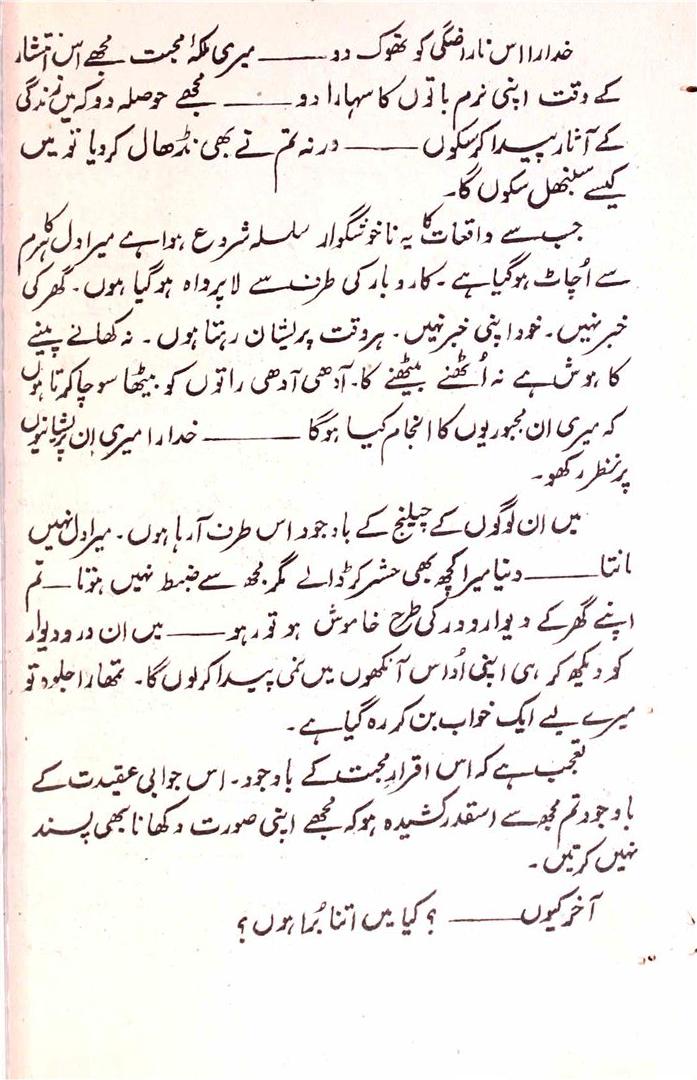 خدارا اس ناراضگی کو تھوک دو ——— میری ملکۂ محبت مجھے اس انتشار
کے وقت اپنی نرم باتوں کا سہارا دو ——— مجھے حوصلہ دو کہ میں زندگی
کے آثار پیدا کر سکوں ——— ورنہ تم نے بھی نڈھال کر دیا تو میں
کیسے سنبھل سکوں گا۔
جب سے واقعات کا یہ ناخوشگوار سلسلہ شروع ہوا ہے میرا دل کام
سے اُچاٹ ہو گیا ہے۔ کاروبار کی طرف سے لا پرواہ ہو گیا ہوں۔ گھر کی
خبر نہیں۔ خود اپنی خبر نہیں۔ ہر وقت پریشان رہتا ہوں۔ نہ کھانے پینے
کا ہوش ہے نہ اُٹھنے بیٹھنے کا۔ آدھی آدھی راتوں کو بیٹھا سوچا کرتا ہوں
کہ میری ان مجبوریوں کا انجام کیا ہوگا ——— خدارا میری ان پریشانیوں
پر نظر رکھو۔
میں ان لوگوں کے چیلنج کے باوجود اس طرف آ رہا ہوں۔ میرا دل نہیں
مانتا ——— دنیا میرا کچھ بھی حشر کر ڈالے مگر مجھ سے ضبط نہیں ہوتا — تم
اپنے گھر کے دیوار و در کی طرح خاموش ہو تو رہو —— میں ان در و دیوار
کو دیکھ کر ہی اپنی اُداس آنکھوں میں نمی پیدا کر لوں گا۔ تمھارا جلوہ تو
میرے لیے ایک خواب بن کر رہ گیا ہے۔
تعجب ہے کہ اس اقرارِ محبت کے باوجود۔ اس جوابی عقیدت کے
باوجود تم مجھ سے اسقدر کشیدہ ہو کہ مجھے اپنی صورت دکھانا بھی پسند
نہیں کرتیں۔
آخر کیوں ——— ؟ کیا میں اتنا بُرا ہوں؟